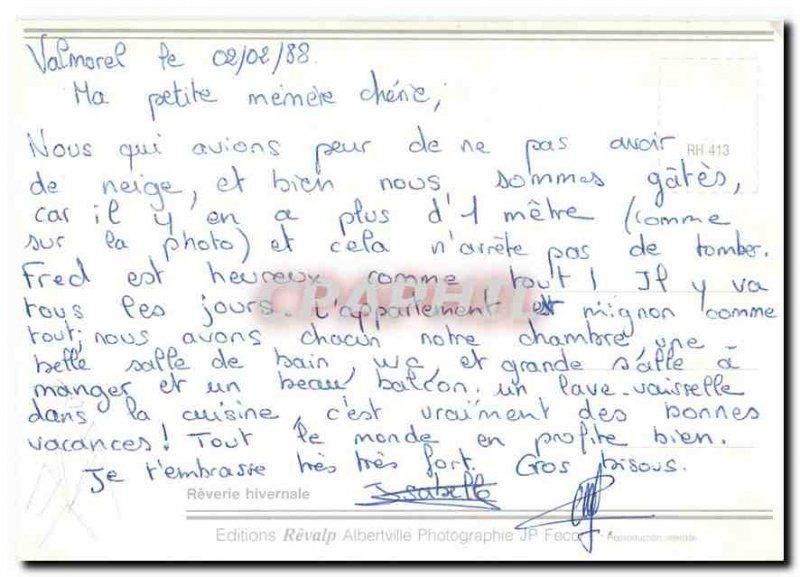 Valmorel le 02/02/88.
Ma petite mémère chérie,
RH 413
Nous qui avions peur de ne pas avoir
de neige, et bien nous sommes gâtés,
car il y en a plus d'1 mètre (comme
sur la photo) et cela n'arrête pas de tomber.
Fred est heureux comme tout ! Il y va
tous les jours. L'appartement est mignon comme
tout; nous avons chacun notre chambre, une
belle salle de bain, wc, et grande salle à
manger et un beau balcon. un lave-vaisselle
dans la cuisine, c'est vraiment des bonnes
vacances! Tout le monde en profite bien.
Je t'embrasse très très fort. Gros bisous.
Isabelle
CPAPHIL
Rêverie hivernale
Editions Rêvalp Albertville Photographie JP Feco Reproduction interdite